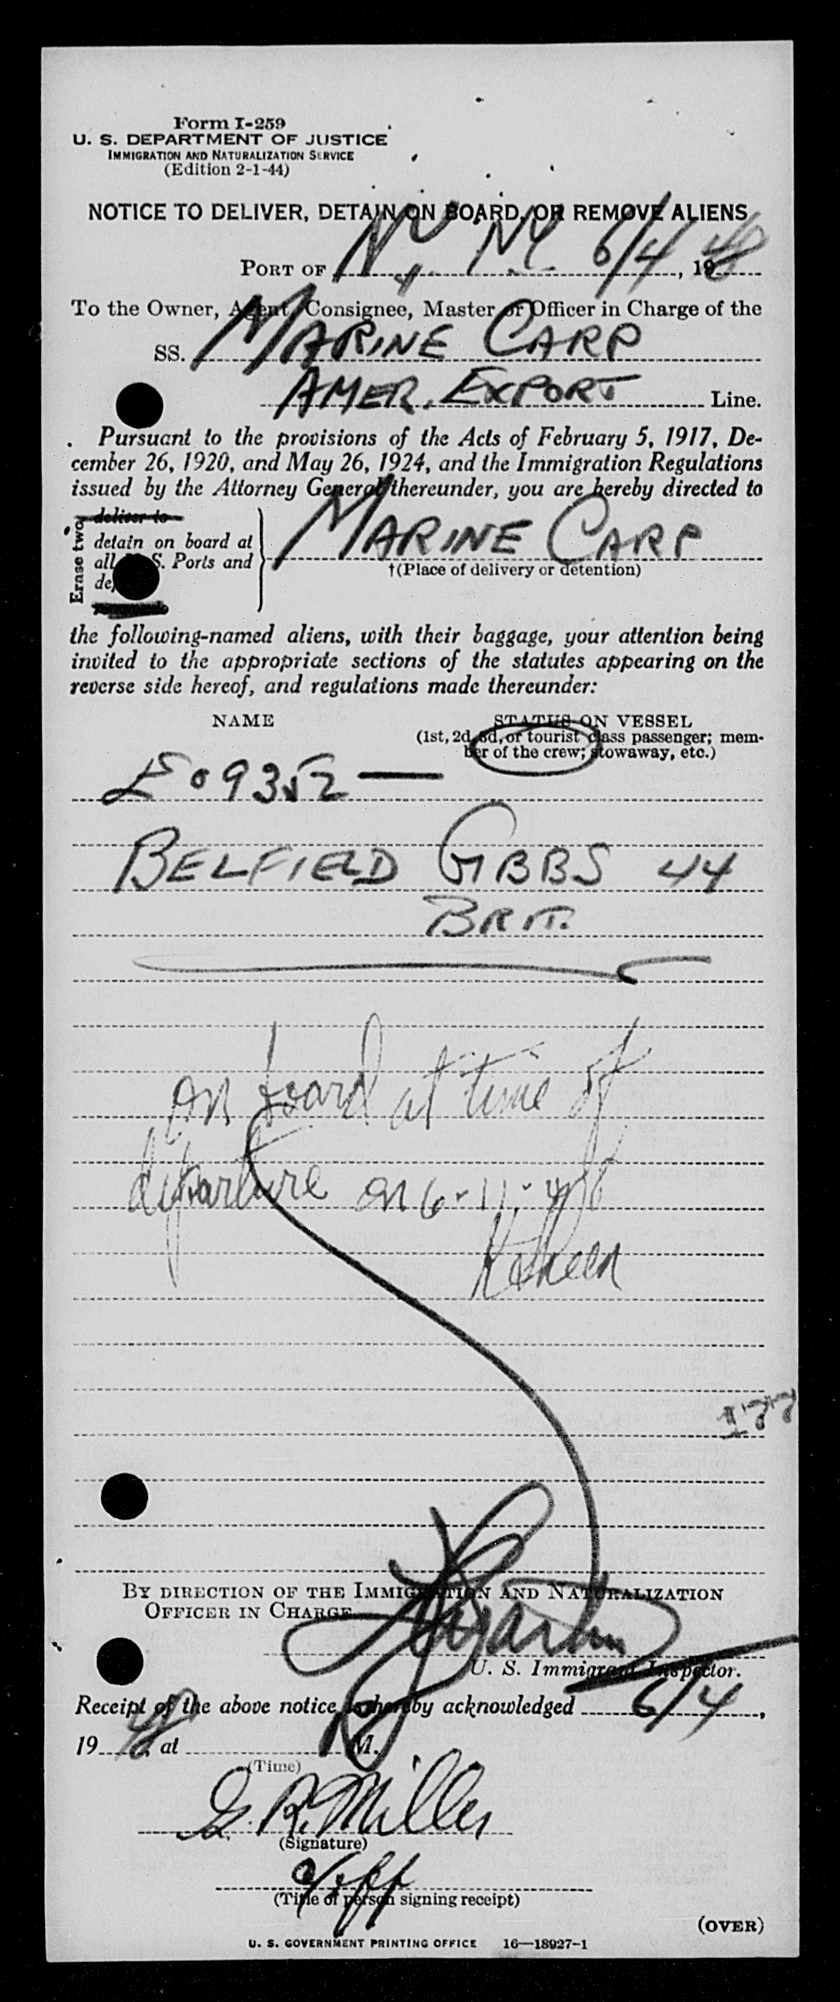 Form I-259
U. S. DEPARTMENT OF JUSTICE
IMMIGRATION AND NATURALIZATION SERVICE
(Edition 2-1-44)
NOTICE TO DELIVER, DETAIN ON BOARD, OR REMOVE ALIENS
PORT OF N.Y. N.Y. 6/4, 1948
To the Owner, Agent, Consignee, Master or Officer in Charge of the
SS. MARINE CARP
AMER. EXPORT Line.
Pursuant to the provisions of the Acts of February 5, 1917, De-
cember 26, 1920, and May 26, 1924, and the Immigration Regulations
issued by the Attorney General thereunder, you are hereby directed to
Erase two
deliver to
detain on board at
all U. S. Ports and
MARINE CARP
†(Place of delivery or detention)
the following-named aliens, with their baggage, your attention being
invited to the appropriate sections of the statutes appearing on the
reverse side hereof, and regulations made thereunder:
NAME STATUS ON VESSEL
(1st, 2d, 3d, or tourist class passenger; mem-
ber of the crew; stowaway, etc.)
E09352 —
BELFIELD GIBBS 44
BRIT.
on board at time of
departure on 6-11-48
I77
BY DIRECTION OF THE IMMIGRATION AND NATURALIZATION
OFFICER IN CHARGE
U. S. Immigrant Inspector.
Receipt of the above notice is hereby acknowledged 6/4,
1948, at M.
(Time)
G. R. Miller
(Signature)
(Title of person signing receipt)
(OVER)
U. S. GOVERNMENT PRINTING OFFICE 16—18927-1